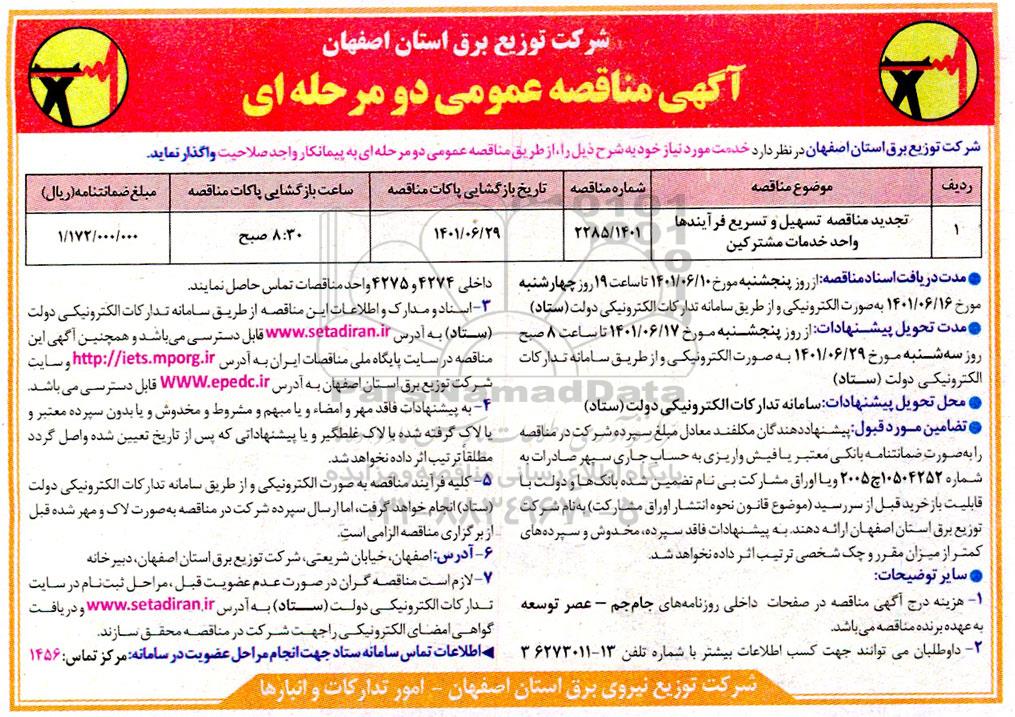 شرکت توزیع برق استان اصفهان
آگهی مناقصه عمومی دو مرحله ای
شرکت توزیع برق استان اصفهان در نظر دارد خدمت مورد نیاز خود به شرح ذیل را، از طریق مناقصه عمومی دو مرحله ای به پیمانکار واجد صلاحیت واگذار نماید.
ردیف موضوع مناقصه شماره مناقصه تاریخ بازگشایی پاکات مناقصه ساعت بازگشایی پاکات مناقصه مبلغ ضمانتنامه(ریال)
۱ تجدید مناقصه تسهیل و تسریع فرآیندها واحد خدمات مشترکین ۲۲۸۵/۱۴۰۱ ۱۴۰۱/۰۶/۲۹ ۸:۳۰ صبح ۱/۱۷۲/۰۰۰/۰۰۰
مدت دریافت اسناد مناقصه: از روز پنجشنبه مورخ ۱۴۰۱/۰۶/۱۰ تا ساعت ۱۹ روز چهارشنبه
مورخ ۱۴۰۱/۰۶/۱۶ به صورت الکترونیکی و از طریق سامانه تدارکات الکترونیکی دولت (ستاد)
مدت تحویل پیشنهادات: از روز پنجشنبه مورخ ۱۴۰۱/۰۶/۱۷ تا ساعت ۸ صبح
روز سه‌شنبه مورخ ۱۴۰۱/۰۶/۲۹ به صورت الکترونیکی و از طریق سامانه تدارکات
الکترونیکی دولت (ستاد)
محل تحویل پیشنهادات: سامانه تدارکات الکترونیکی دولت (ستاد)
تضامین مورد قبول: پیشنهاددهندگان مکلفند معادل مبلغ سپرده شرکت در مناقصه
را به صورت ضمانتنامه بانکی معتبر یا فیش واریزی به حساب جاری سپهر صادرات به
شماره ۰۱۰۵۰۴۲۵۲ج۲۰۰۵ و یا اوراق مشارکت بی نام تضمین شده بانک‌ها و دولت با
قابلیت بازخرید قبل از سررسید (موضوع قانون نحوه انتشار اوراق مشارکت) به نام شرکت
توزیع برق استان اصفهان ارائه دهند. به پیشنهادات فاقد سپرده، مخدوش و سپرده‌های
کمتر از میزان مقرر و چک شخصی ترتیب اثر داده نخواهد شد.
سایر توضیحات:
۱- هزینه درج آگهی مناقصه در صفحات داخلی روزنامه‌های جام‌جم – عصر توسعه
به عهده برنده مناقصه می‌باشد.
۲- داوطلبان می توانند جهت کسب اطلاعات بیشتر با شماره تلفن ۱۳-۳۶۲۷۳۰۱۱
داخلی ۴۲۷۴ و ۴۲۷۵ واحد مناقصات تماس حاصل نمایند.
۳- اسناد و مدارک و اطلاعات این مناقصه از طریق سامانه تدارکات الکترونیکی دولت
(ستاد) به آدرس www.setadiran.ir قابل دسترسی می‌باشد و همچنین آگهی این
مناقصه در سایت پایگاه ملی مناقصات ایران به آدرس http://iets.mporg.ir و سایت
شرکت توزیع برق استان اصفهان به آدرس WWW.epedc.ir قابل دسترسی می باشد.
۴- به پیشنهادات فاقد مهر و امضاء و یا مبهم و مشروط و مخدوش و یا بدون سپرده معتبر و
یا لاک گرفته شده یا لاک غلطگیر و یا پیشنهاداتی که پس از تاریخ تعیین شده واصل گردد
مطلقاً ترتیب اثر داده نخواهد شد.
۵- کلیه فرآیند مناقصه به صورت الکترونیکی و از طریق سامانه تدارکات الکترونیکی دولت
(ستاد) انجام خواهد گرفت، اما ارسال سپرده شرکت در مناقصه به صورت لاک و مهر شده قبل
از برگزاری مناقصه الزامی است.
۶- آدرس: اصفهان، خیابان شریعتی، شرکت توزیع برق استان اصفهان، دبیرخانه
۷- لازم است مناقصه گران در صورت عدم عضویت قبل، مراحل ثبت‌نام در سایت
تدارکات الکترونیکی دولت (ستاد) به آدرس www.setadiran.ir و دریافت
گواهی امضای الکترونیکی را جهت شرکت در مناقصه محقق سازند.
اطلاعات تماس سامانه ستاد جهت انجام مراحل عضویت در سامانه: مرکز تماس: ۱۴۵۶
شرکت توزیع نیروی برق استان اصفهان - امور تدارکات و انبارها
ParsNamadData
پایگاه اطلاع رسانی مناقصه و مزایده